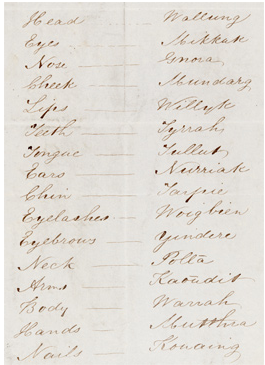 Head Wallung
Eyes Mikkak
Nose Gnora
Cheek Mundarg
Lips Willyk
Teeth Tyrrah
Tongue Tullut
Ears Nurriak
Chin Tarpie
Eyelashes Woigbien
Eyebrows Yindere
Neck Polta
Arms Kaoudit
Body Warrah
Hands Mutthra
Nails Kouaing